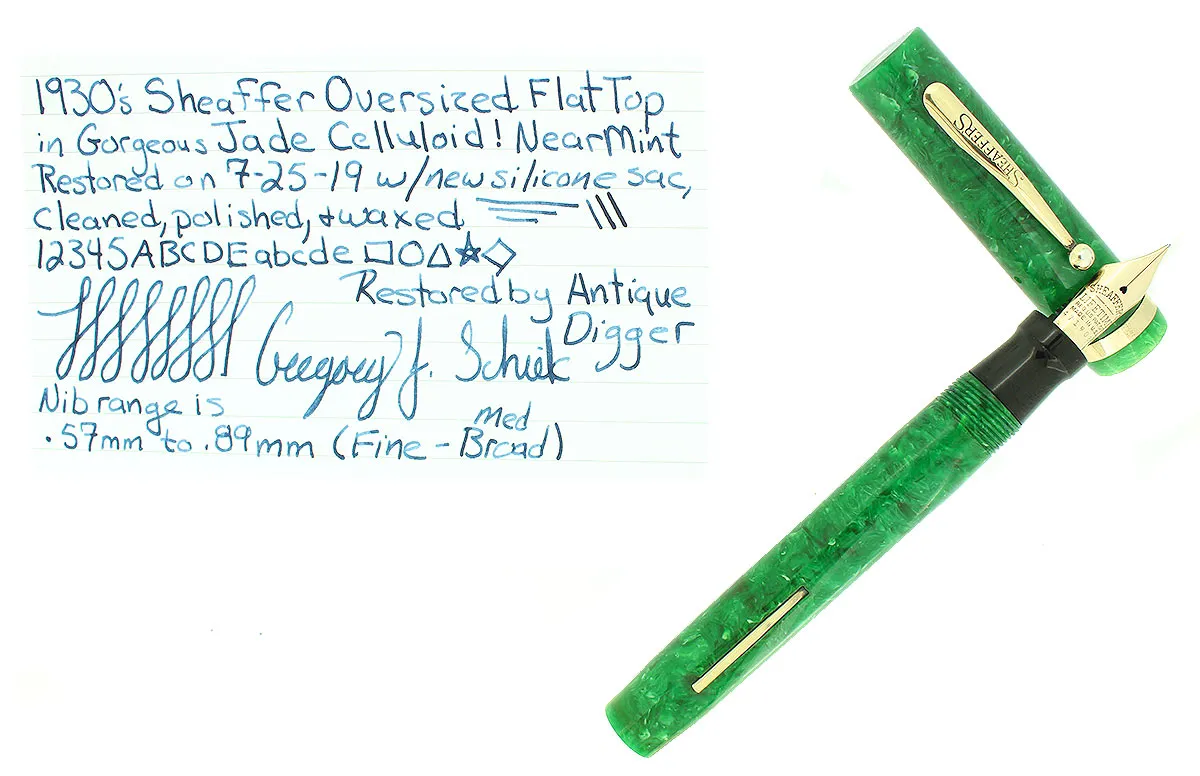 1930's Sheaffer Oversized Flat Top
in Gorgeous Jade Celluloid! Near Mint
Restored on 7-25-19 w/new silicone sac,
cleaned, polished, & waxed
12345ABCDE abcde
Restored by Antique
Digger
Gregory J. Schiek
Nib range is
.57mm to .89mm (Fine - Med Broad)
SHEAFFER'S
SHEAFFER'S
LIFETIME